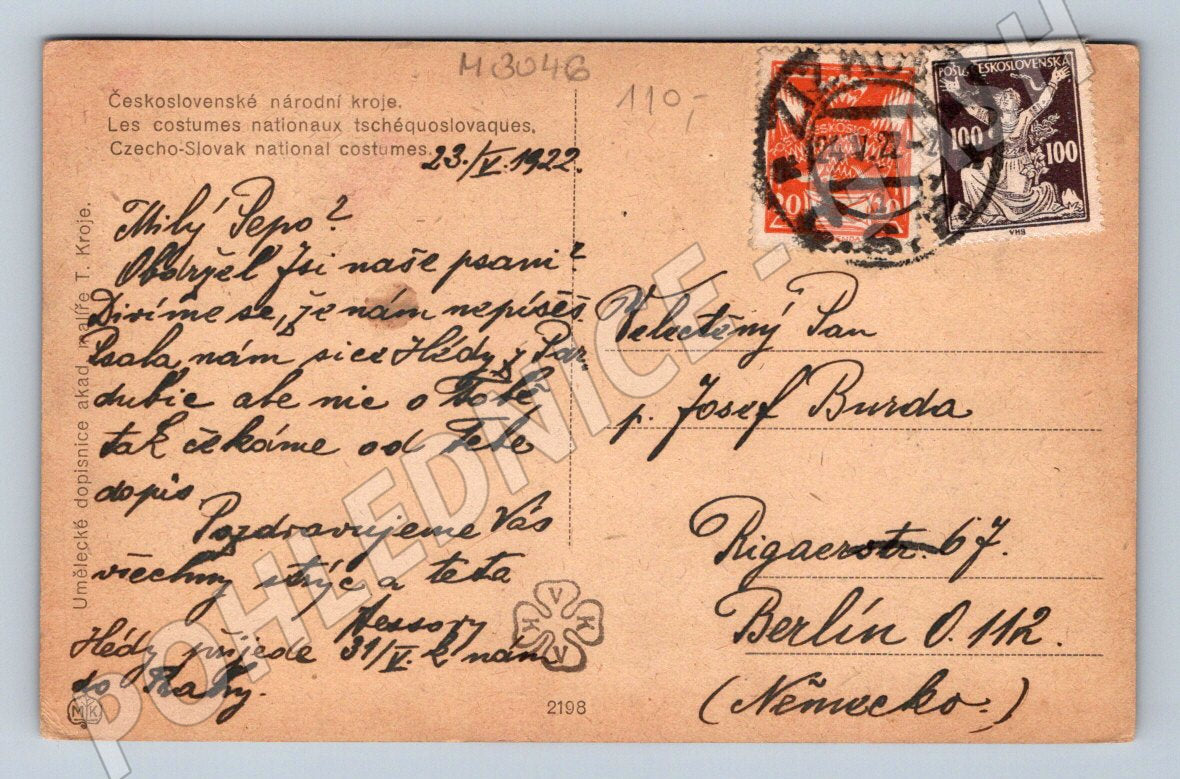 M3046
110,-
Československé národní kroje.
Les costumes nationaux tschéquoslovaques.
Czecho-Slovak national costumes.
23./V. 1922.
Milý Pepo?
Obdržel Jsi naše psaní?
Divíme se, že nám nepíšeš.
Psala nám sice Hédy z Par
dubic ale nic o Tobě
tak čekáme od Tebe
dopis.
Pozdravujeme Vás
všechny strýc a teta
Hessovy
Hédy přijede 31/V. k nám
do Prahy.
Umělecké dopisnice akad. malíře T. Kroje.
POŠTA ČESKOSLOVENSKÁ
100 100
VHB
20
24.V.22
Velectěný Pan
p. Josef Burda
Rigaerstr. 67.
Berlín O. 112.
(Německo.)
V K V K
MK
2198
POHLEDNICE